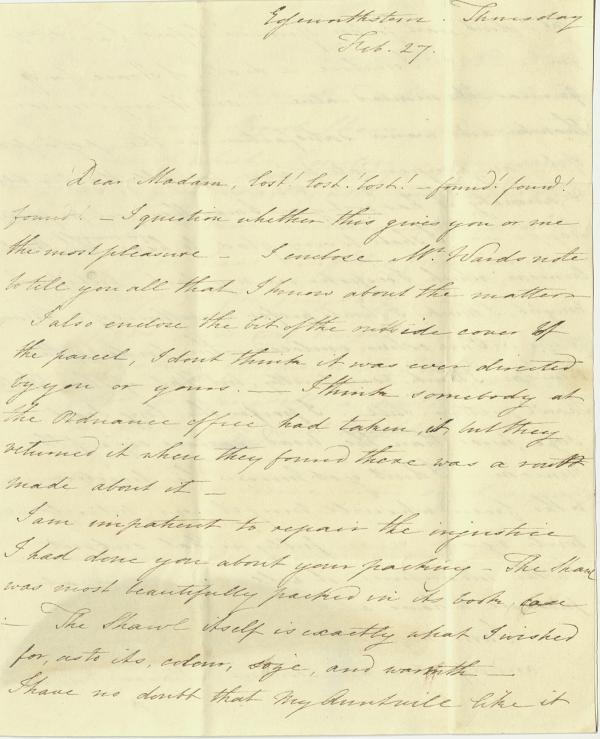 Edgeworthstown. Thursday
Feb. 27.
Dear Madam, lost! lost! lost! – found! found!
found! – I question whether this gives you or me
the most pleasure – I enclose Mr. Wards note
to tell you all that I know about the matter –
I also enclose the bit of the outside cover of
the parcel, I dont think it was ever directed
by you or yours. — I think somebody at
the Ordnance office had taken it, but they
returned it when they found there was a rout
made about it –
I am impatient to repair the injustice
I had done you about your packing – The Shawl
was most beautifully packed in its book case
– The Shawl itself is exactly what I wished
for, as to its, colour, size, and warmth –
I have no doubt that My Aunt will like it